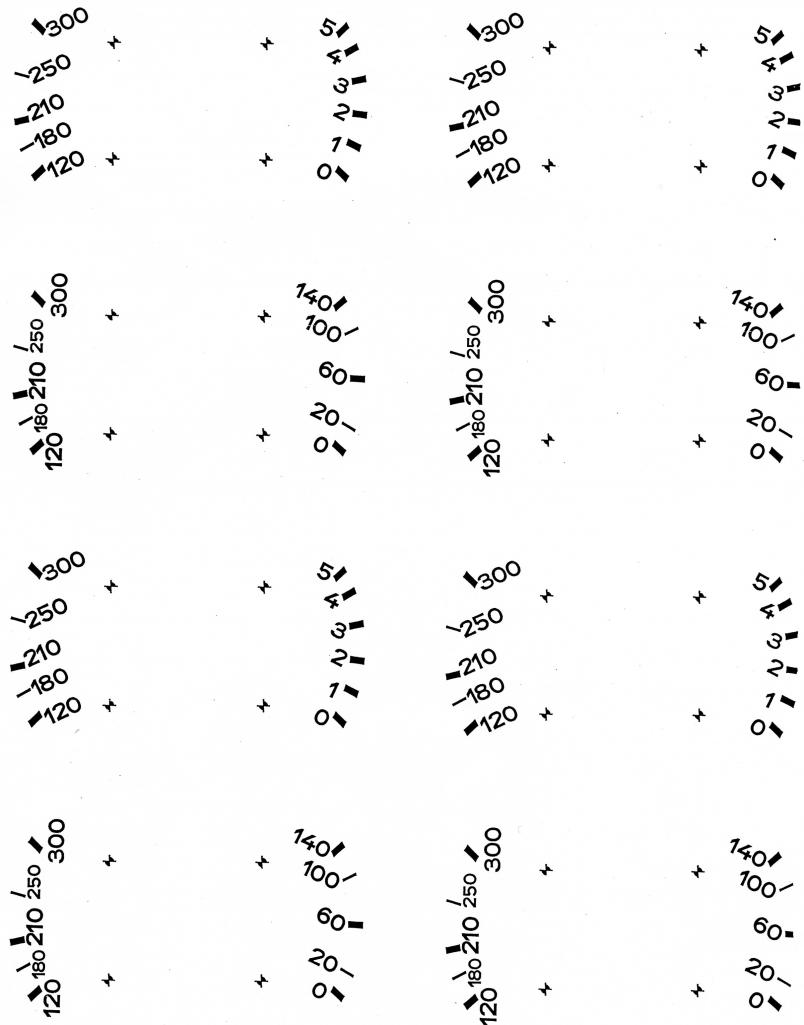 300 5 300 5
250 4 250 4
210 3 210 3
180 2 180 2
120 1 120 1
0 0
300 140 300 140
250 100 250 100
210 60 210 60
180 20 180 20
120 0 120 0
300 5 300 5
250 4 250 4
210 3 210 3
180 2 180 2
120 1 120 1
0 0
300 140 300 140
250 100 250 100
210 60 210 60
180 20 180 20
120 0 120 0